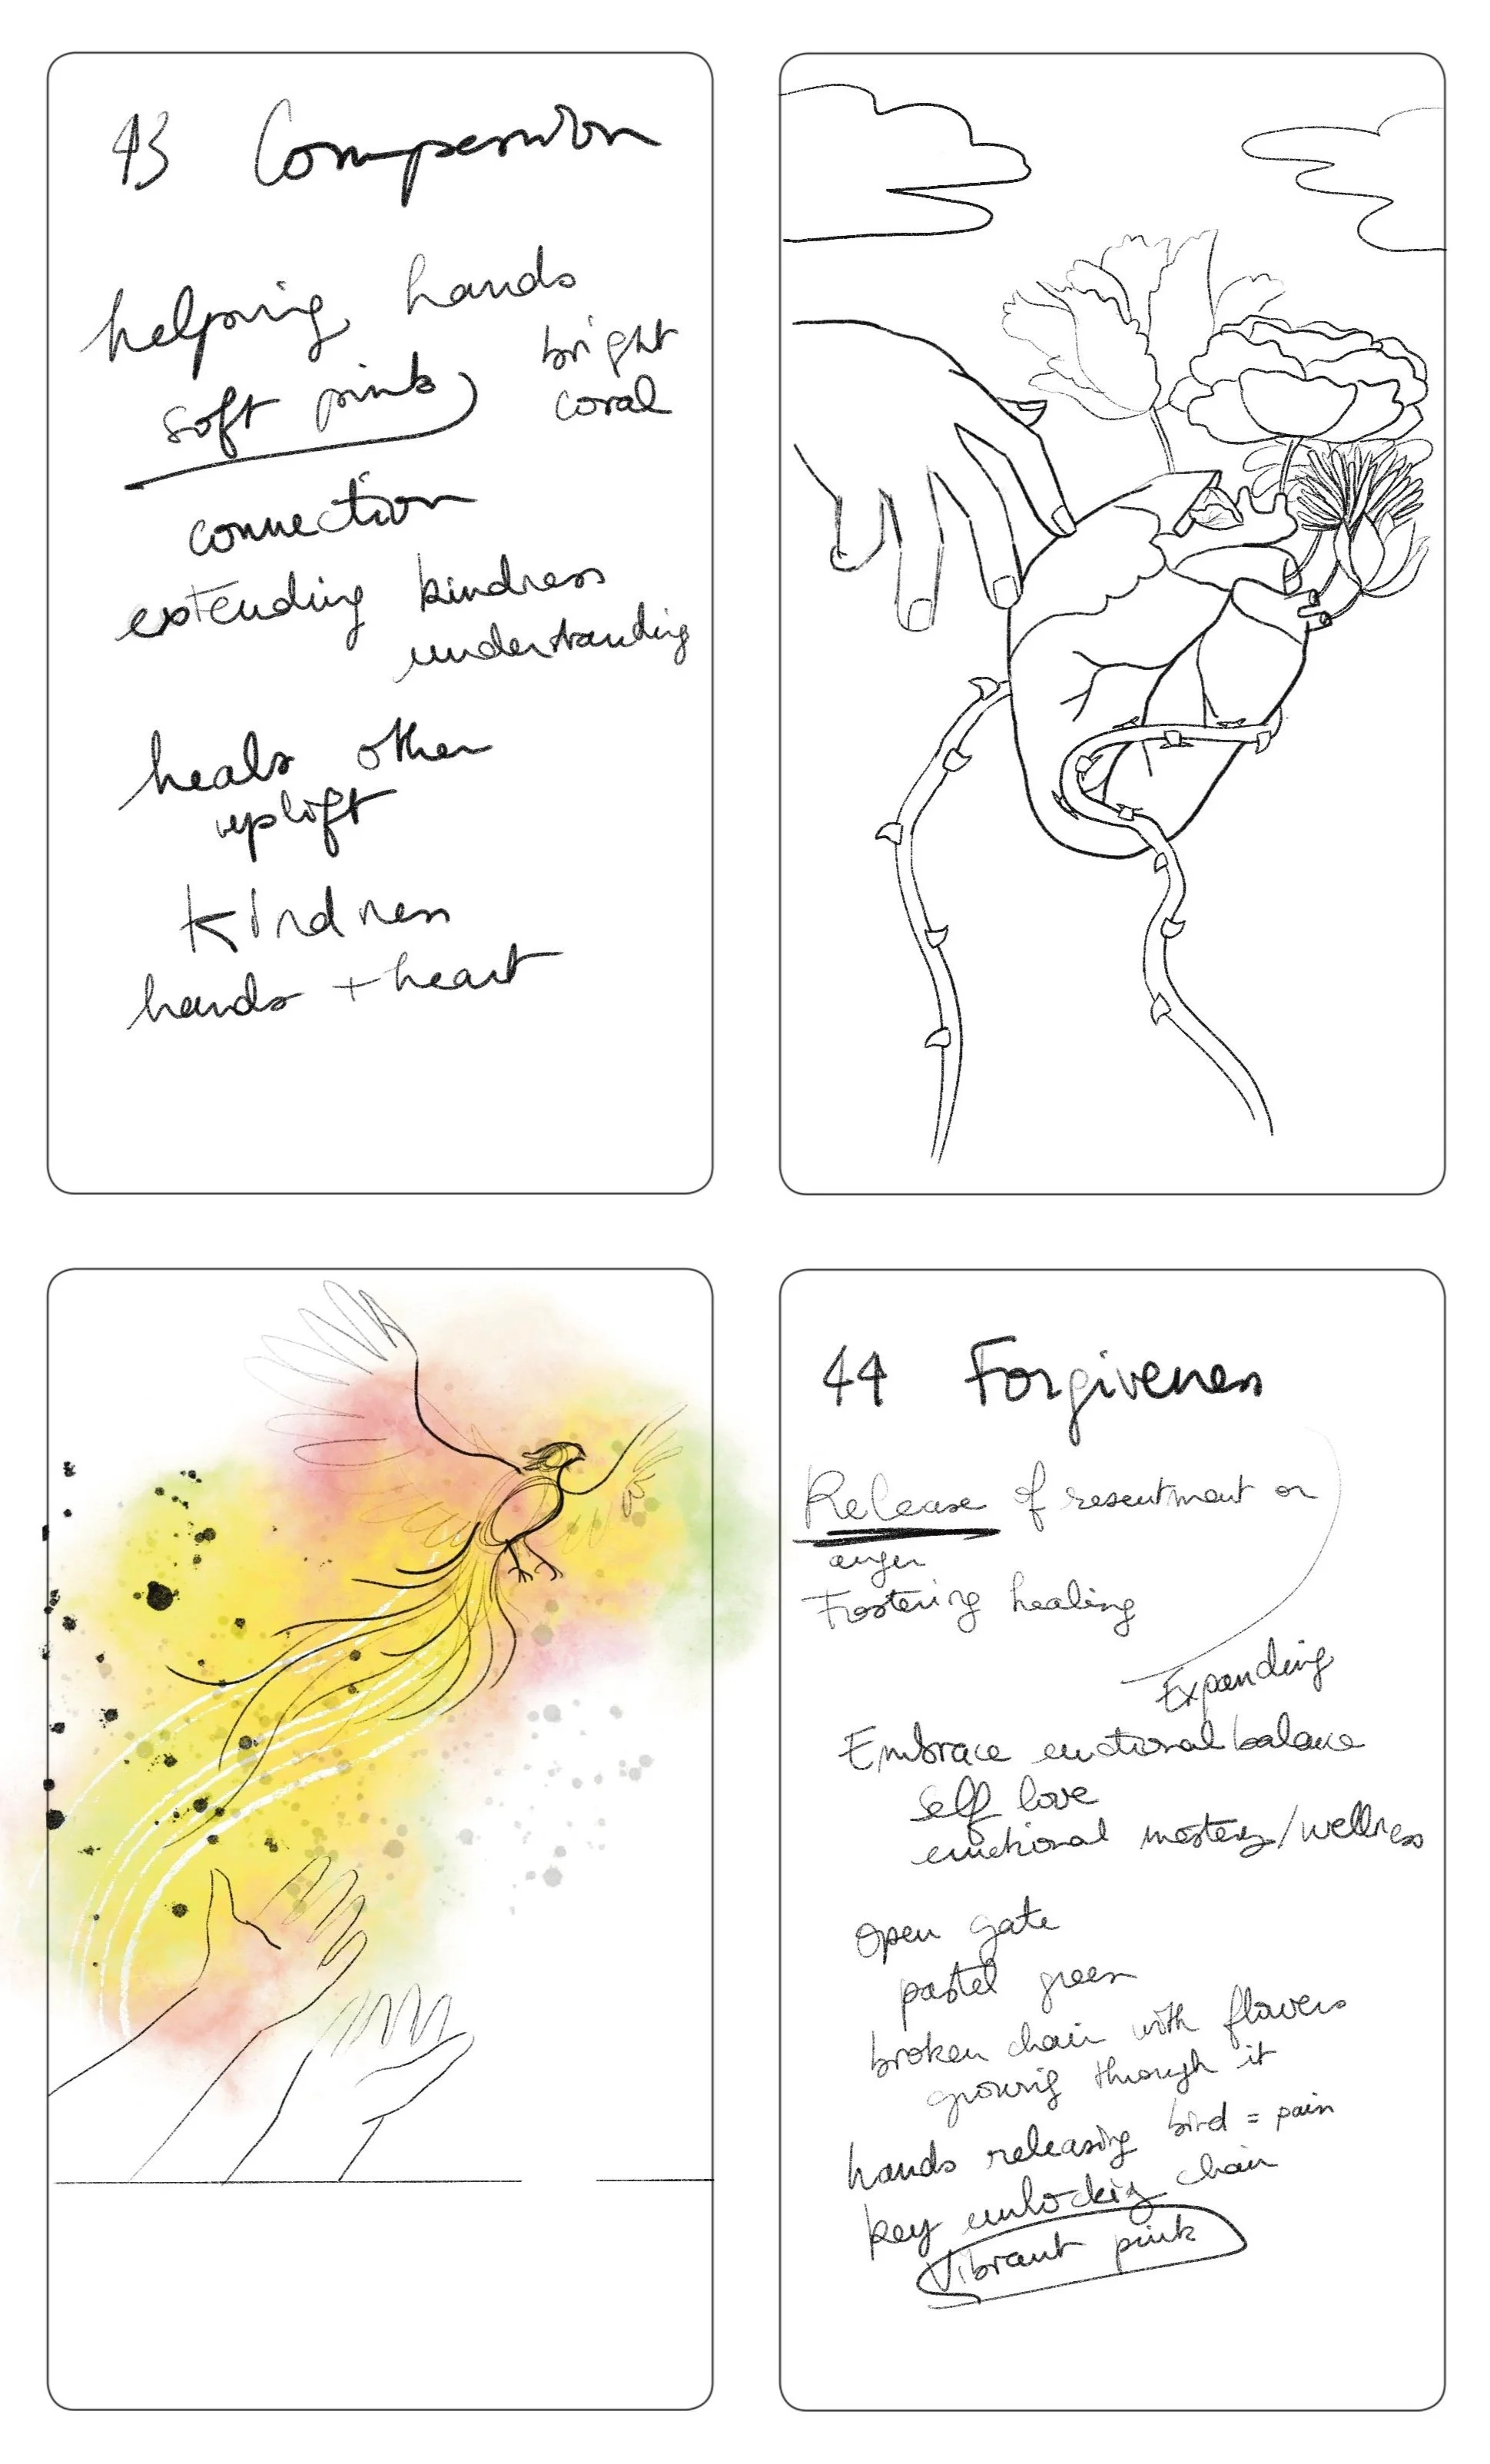 43 Compassion
helping hands
soft pink
bright
coral
connection
extending kindness
understanding
heals other
uplift
kindness
hands + heart
44 Forgiveness
Release of resentment or
anger
Fostering healing
Expanding
Embrace emotional balance
Self love
emotional mastery/wellness
open gate
pastel green
broken chain with flowers
growing through it
hands releasing bird = pain
key unlocking chain
Vibrant pink